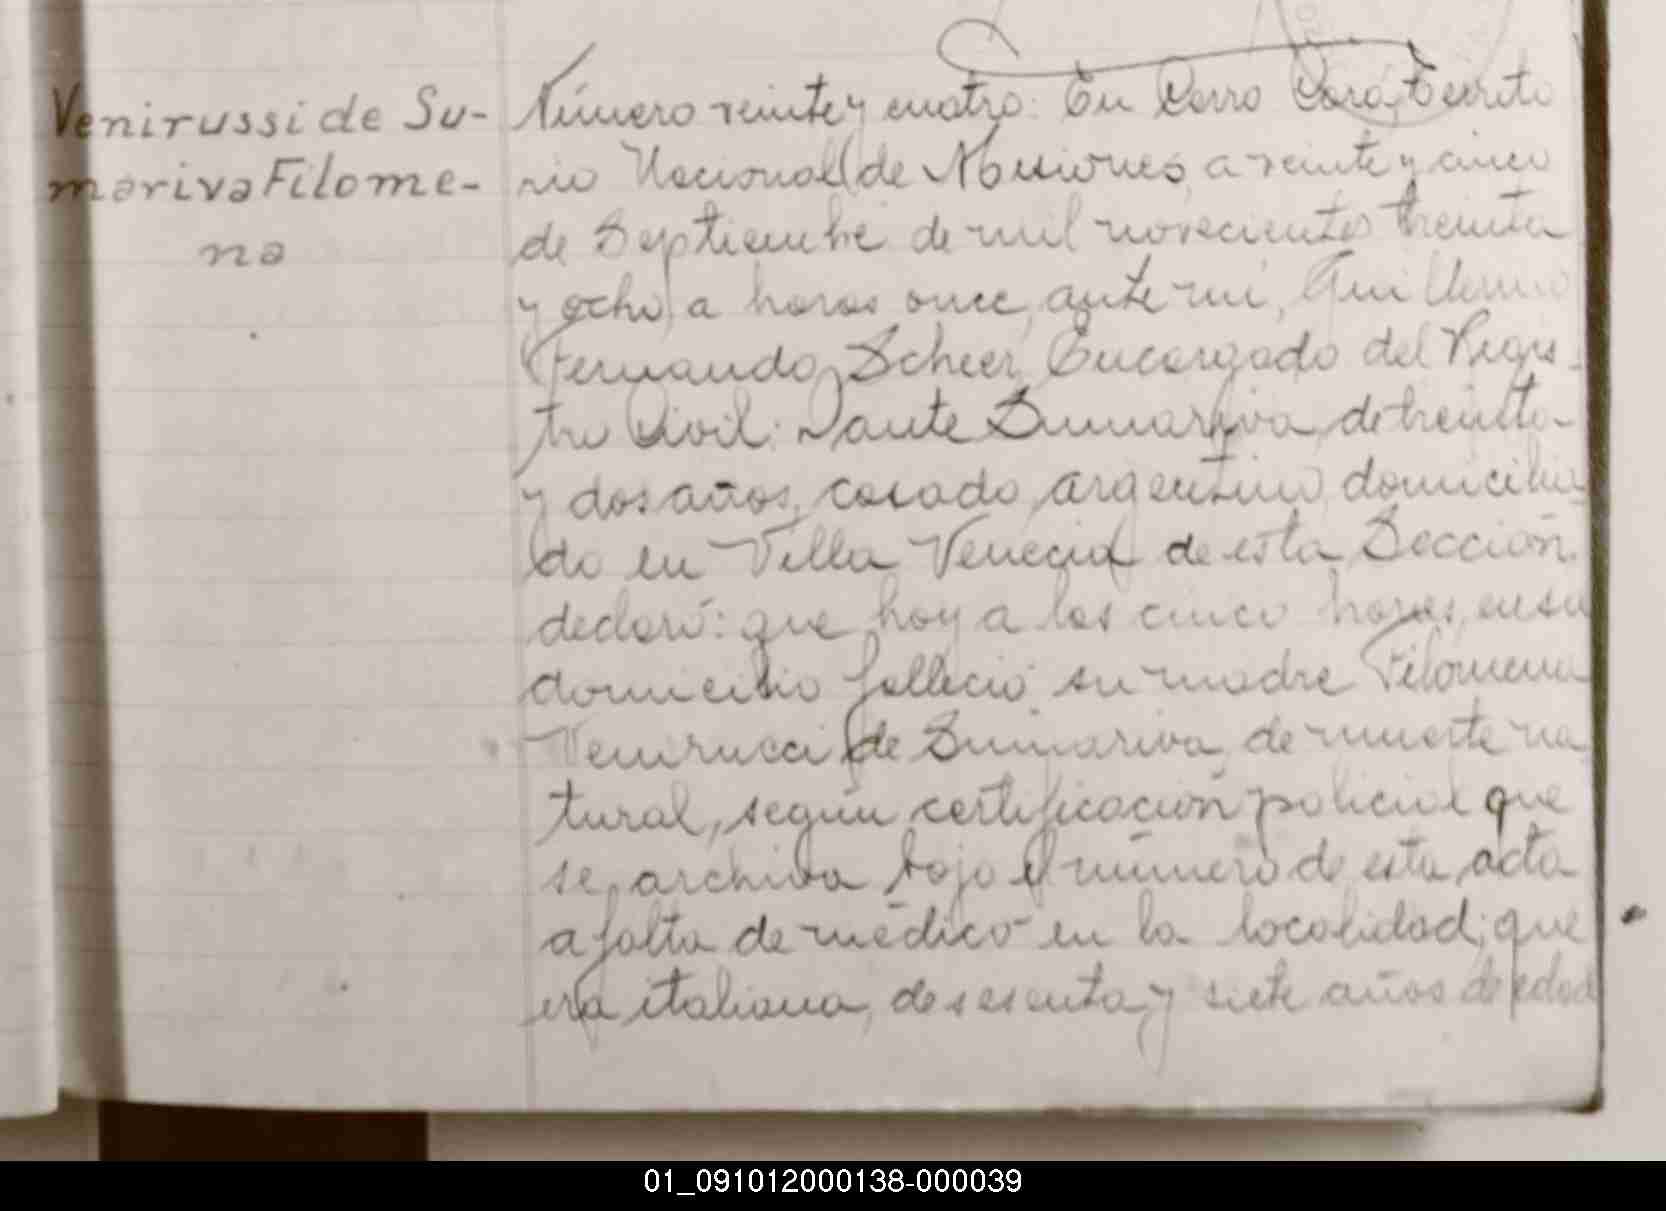 Venirussi de Su-
mariva Filome-
na
Número veinte y cuatro: En Cerro Corá, Territo
rio Nacional de Misiones, a veinte y cinco
de Septiembre de mil novecientos treinta
y ocho, a horas once, ante mí, Guillermo
Fernando Scheer, Encargado del Regis-
tro Civil: Dante Sumariva, de treinta
y dos años, casado, argentino, domicilia
do en Villa Venecia de esta Sección,
declaró: que hoy a las cinco horas, en su
domicilio falleció su madre Filomena
Venirucci de Sumariva, de muerte na
tural, según certificación policial que
se archiva bajo el número de esta acta
a falta de médico en la localidad; que
era italiana, de sesenta y siete años de edad
01_091012000138-000039